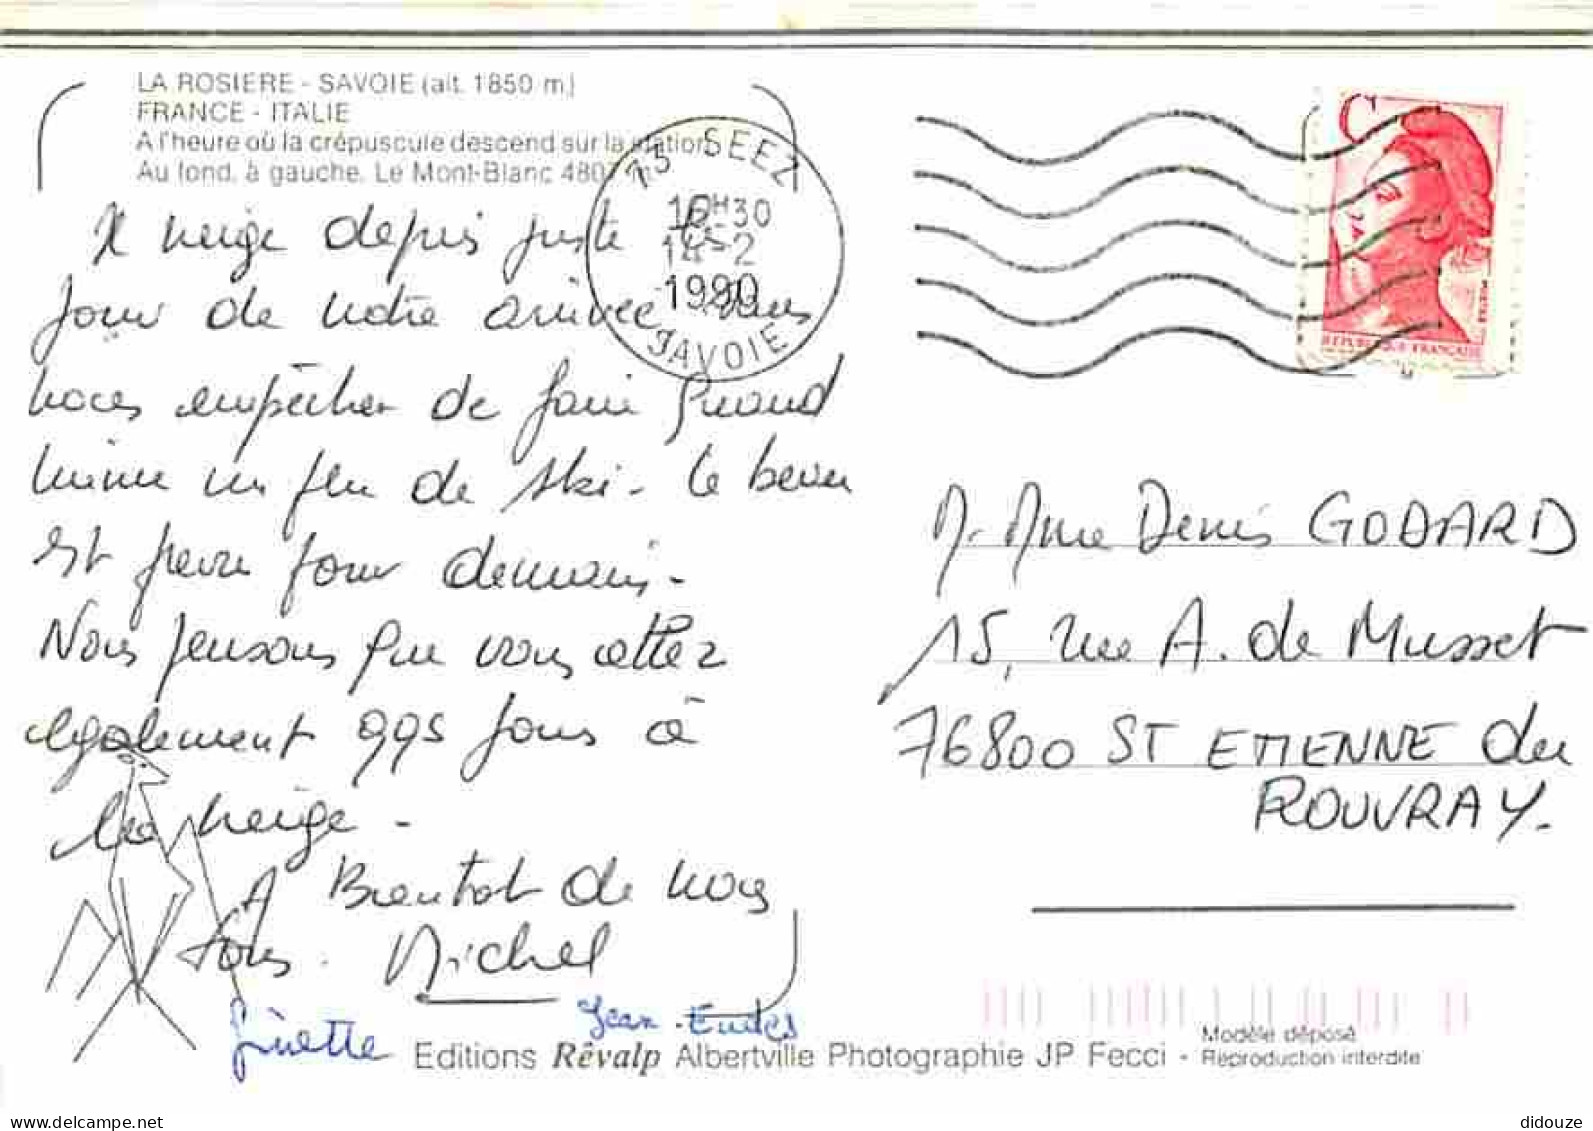 LA ROSIERE - SAVOIE (alt. 1850 m.)
FRANCE - ITALIE
A l'heure où la crépuscule descend sur la station
Au fond, à gauche, Le Mont-Blanc 4807 m
73 SEEZ
16H30
14-2
1990
SAVOIE
C
RÉPUBLIQUE FRANÇAISE
Il neige depuis juste
jour de notre arrivée sans
nous empêcher de faire quand
même un peu de ski. Le beau
est prévu pour demain.
Nous pensons que vous allez
également qqs jours à
la neige.
A Bientot de nous
tous. Michel
Ginette
Jean-Eudes
M. Mme Denis GODARD
15, rue A. de Musset
76800 ST ETIENNE du
ROUVRAY.
Editions Rêvalp Albertville Photographie JP Fecci - Modèle déposé
Reproduction interdite
www.delcampe.net
didouze